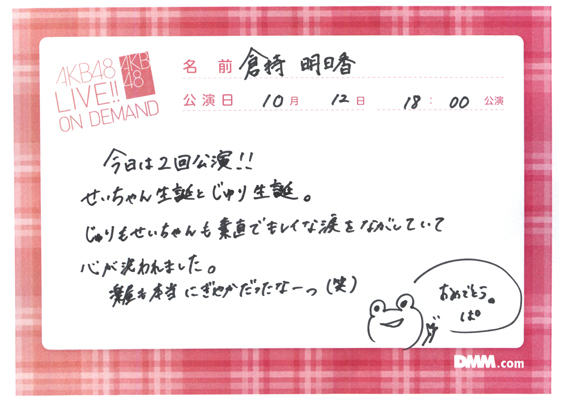 AKB48
LIVE!!
ON DEMAND
AKB
48
名 前 倉持 明日香
公演日 10月 12日 18:00 公演
今日は2回公演!!
せいちゃん生誕とじゅり生誕。
じゅりもせいちゃんも素直でキレイな涙をながしていて
心が洗われました。
楽屋も本当ににぎやかだったなーっ(笑)
おめでとう。
ぱ
DMM.com